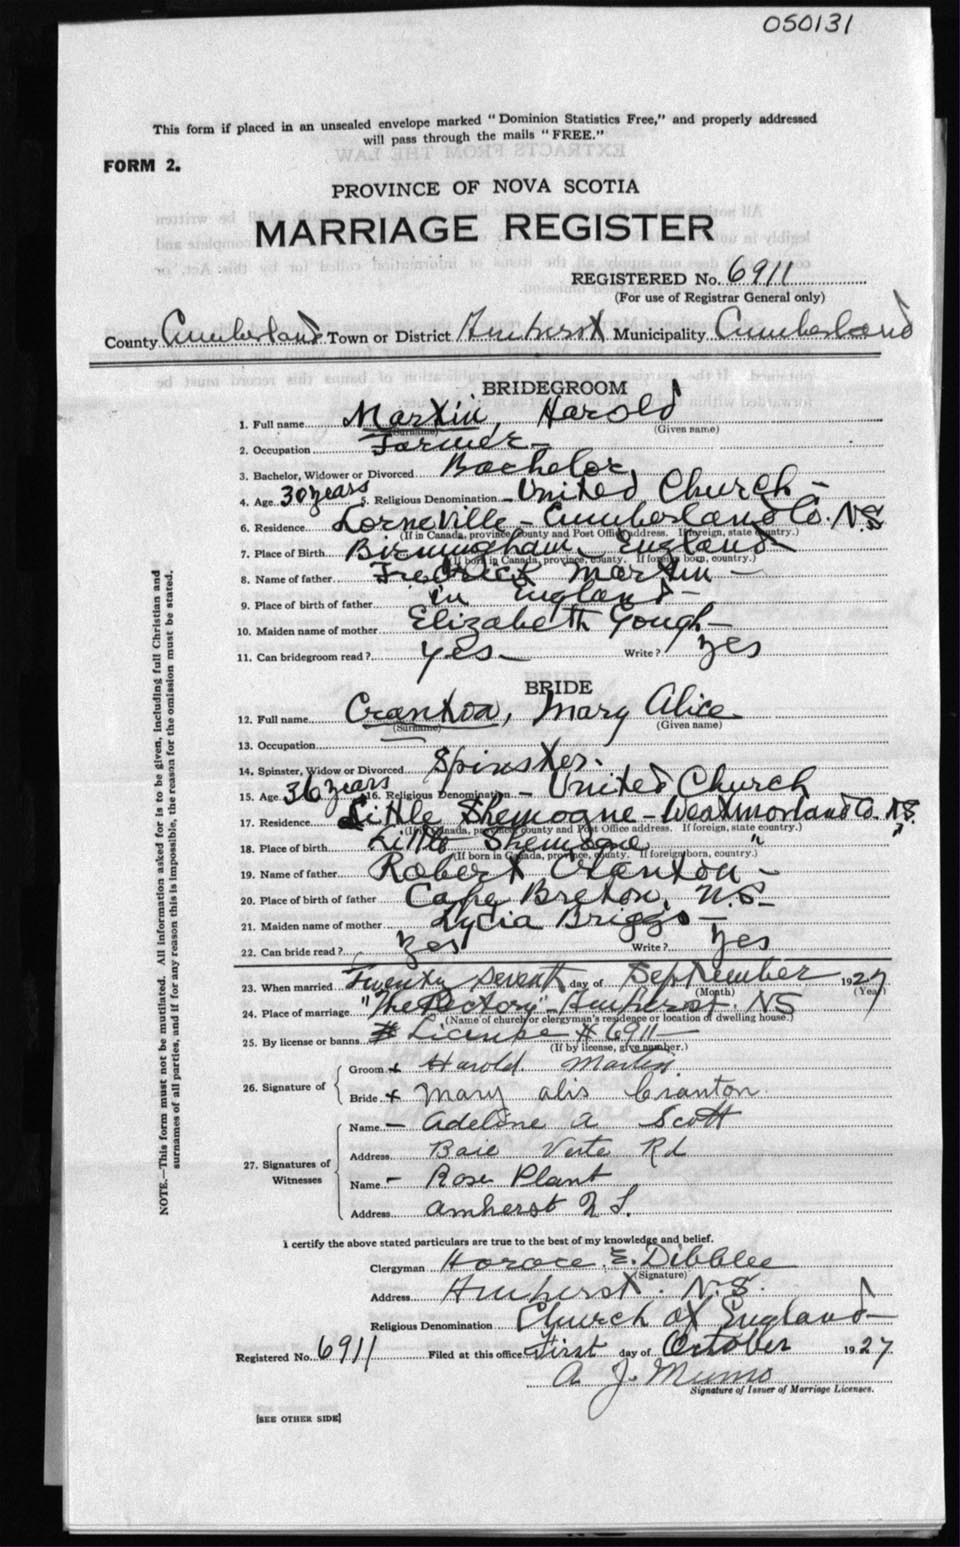 050131
This form if placed in an unsealed envelope marked "Dominion Statistics Free," and properly addressed
will pass through the mails "FREE."
FORM 2.
PROVINCE OF NOVA SCOTIA
MARRIAGE REGISTER
REGISTERED No. 6911
(For use of Registrar General only)
County Cumberland Town or District Amherst Municipality Cumberland
BRIDEGROOM
1. Full name Martin, Harold
(Surname) (Given name)
2. Occupation Farmer –
3. Bachelor, Widower or Divorced Bachelor
4. Age 30 years 5. Religious Denomination – United Church –
6. Residence Lorneville – Cumberland Co. N.S
(If in Canada, province, county and Post Office address. If foreign, state country.)
7. Place of Birth Birmingham, England
(If born in Canada, province, county. If foreign born, country.)
8. Name of father Fredrick Martin –
9. Place of birth of father in England –
10. Maiden name of mother Elizabeth Gough –
11. Can bridegroom read? yes – Write? yes
BRIDE
12. Full name Cranton, Mary Alice
(Surname) (Given name)
13. Occupation
14. Spinster, Widow or Divorced Spinster.
15. Age 36 years 16. Religious Denomination – United Church
17. Residence Little Shemogne – Westmorland Co. N.S.
(If in Canada, province, county and Post Office address. If foreign, state country.)
18. Place of birth Little Shemogne "
(If born in Canada, province, county. If foreign born, country.)
19. Name of father Robert Cranton –
20. Place of birth of father Cape Breton, N.S –
21. Maiden name of mother Lycia Briggs –
22. Can bride read? yes Write? yes
23. When married Twenty seventh day of September 1927
(Month) (Year)
24. Place of marriage "The Rectory" – Amherst. NS
(Name of church or clergyman's residence or location of dwelling house.)
25. By license or banns # License # 6911 –
(If by license, give number.)
26. Signature of
Groom + Harold Martin
Bride + Mary alis Cranton
27. Signatures of Witnesses
Name – Adeline A Scott
Address Baie Verte Rd
Name – Rose Plant
Address Amherst N S.
I certify the above stated particulars are true to the best of my knowledge and belief.
Clergyman Horace E. Dibblee
(Signature)
Address Amherst. N.S.
Religious Denomination Church of England –
Registered No. 6911 Filed at this office First day of October 1927
A. J. Munro
Signature of Issuer of Marriage Licenses.
[SEE OTHER SIDE]
NOTE.—This form must not be mutilated. All information asked for is to be given, including full Christian and
surnames of all parties, and if for any reason this is impossible, the reason for the omission must be stated.